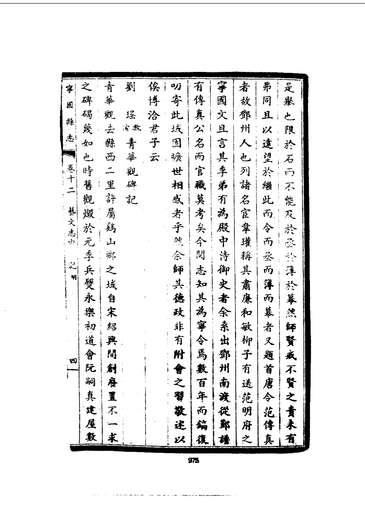 是舉也限於石而不能及於丞於簿於幕然師賢戒不賢之責未有
弗同且以遠望於繼此而令而丞而簿而幕者又題首唐令范傳真
者故鄧州人也列諸名宦韋瓘稱其肅廉和敏柳子有送范明府之
寧國文且言其季弟有為殿中侍御史者余系出鄧州南渡從鄭譜
有傳真公名而官職莫考矣今閱志知其為寧令焉數百年而鎬復
叨寄此城困曠世相感者乎然余師其德政非有附會之習敬述以
俟博洽君子云
劉瑤 教諭 青華觀碑記
青華觀去縣西二里許屬鷄山鄉之域自宋紹興間創廢置不一求
之碑碣蔑如也時舊觀燬於元季兵燹永樂初道會阮嗣真建屋數
寧國縣志 卷十二 藝文志中 記 明 四
975